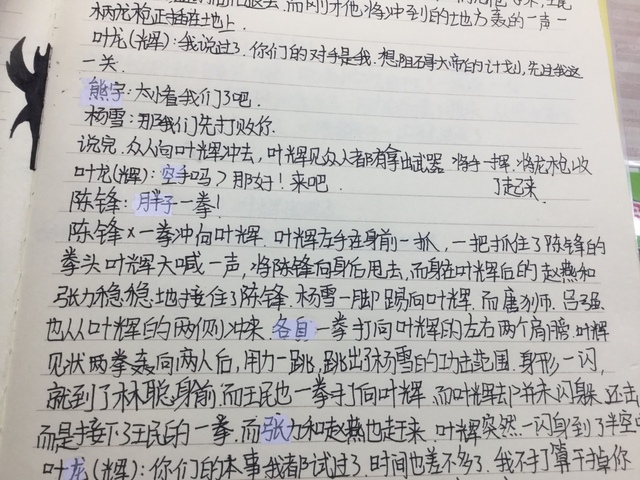 柄龙枪正插在土地上
叶龙(辉):我说过了.你们的对手是我.想阻碍大帝的计划,先过我这
一关.
熊宇:太小看我们了吧.
杨雪:那我们先打败你.
说完.众人向叶辉冲去,叶辉见众人都有拿出武器 将手一挥,将龙枪收
了起来
叶龙(辉):空手吗?那好!来吧.
陈锋:胖子一拳!
陈锋×一拳冲向叶辉.叶辉左手在身前一抓,一把抓住了陈锋的
拳头叶辉大喊一声,将陈锋向身后甩去,而身在叶辉后的赵燕和
张力稳稳地接住了陈锋.杨雪一脚踢向叶辉.而唐狮.吕强
也从叶辉的两侧冲来.各自一拳打向叶辉的左右两个肩膀.叶辉
见状两拳轰向两人后,用力一跳,跳出了杨雪的攻击范围.身形一闪,
就到了林聪身前.而王民也一拳打向叶辉.而叶辉却并未闪躲.还击
而是接下了王民的一拳.而张力和赵燕也赶来.叶辉突然一闪身到了半空中
叶龙(辉):你们的本事我都试过了.时间也差不多了.我不打算干掉你